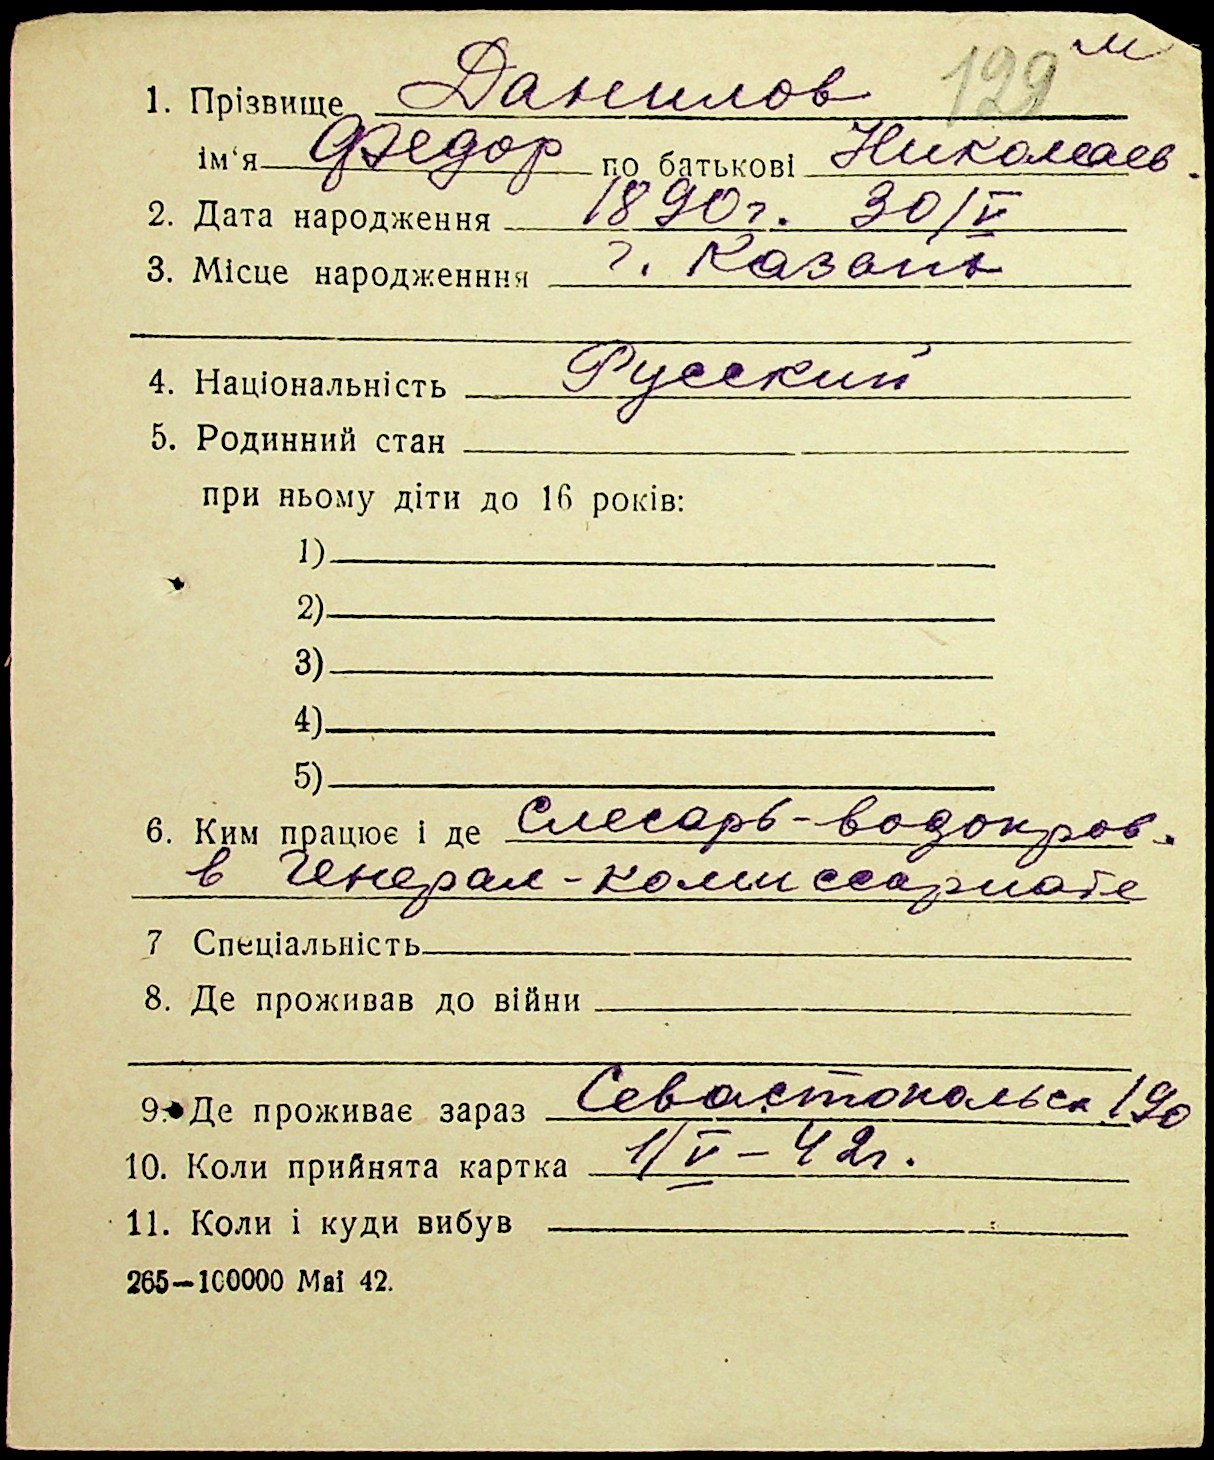 129 м
1. Прізвище Данилов
ім‘я Федор по батькові Николаев.
2. Дата народження 1890 г. 30/V
3. Місце народженння г. Казань
4. Національність Русский
5. Родинний стан
при ньому діти до 16 років:
1)
2)
3)
4)
5)
6. Ким працює і де Слесарь-водопров.
в Генерал-комиссариате
7 Спеціальність
8. Де проживав до війни
9. Де проживає зараз Севастопольск 190
10. Коли прийнята картка 1/V – 42 г.
11. Коли і куди вибув
265—100000 Mai 42.